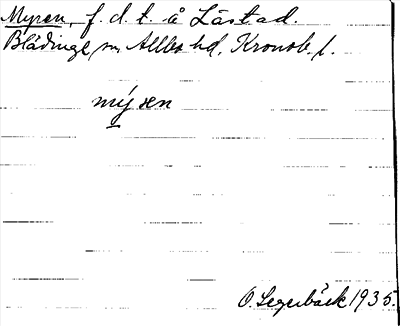 Myren, f. d. t. å Låstad.
Blädinge sn, Allbo hd, Kronob. l.
mýren
O. Legerbäck 1935.